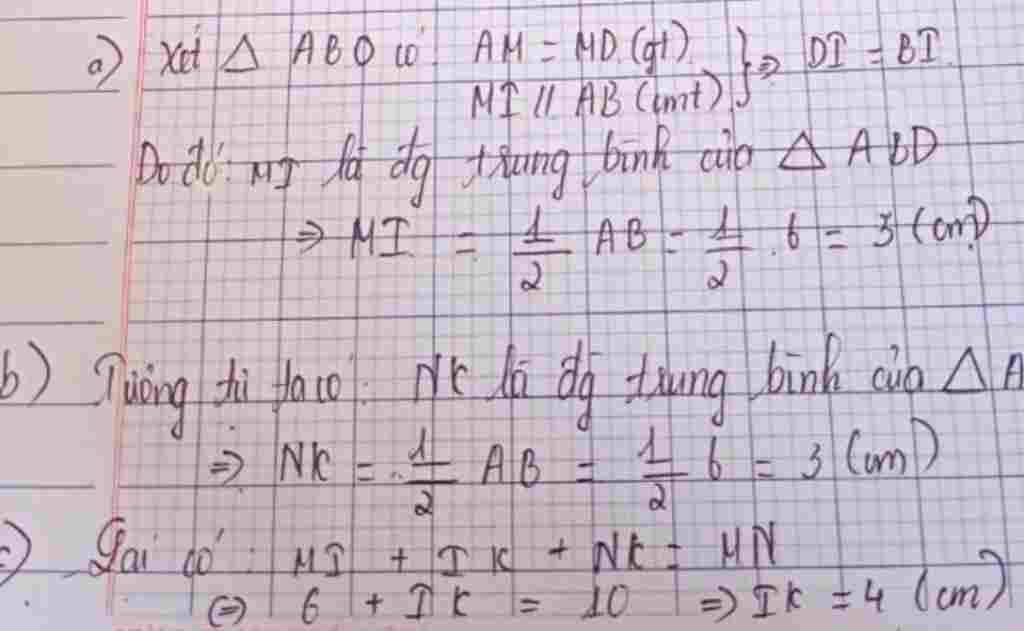 a) Xét Δ ABD có AM = MD (gt) } ⇒ DI = BI.
MI // AB (cmt)
Do đó: MI là đg trung bình của Δ ABD
⇒ MI = 1/2 AB = 1/2 . 6 = 3 (cm)
b) Tương tự ta có: NK là đg trung bình của Δ A
⇒ NK = 1/2 AB = 1/2 6 = 3 (cm)
c) có: MI + IK + NK = MN
⇔ 6 + IK = 10 ⇒ IK = 4 (cm)